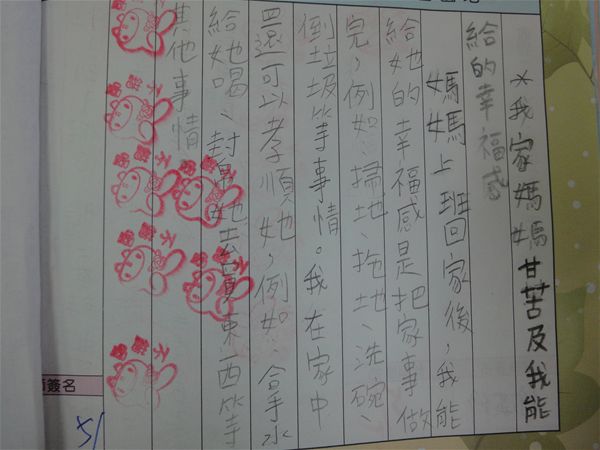 *我家媽媽甘苦及我能
給的幸福感
媽媽上班回家後，我能
給她的幸福感是把家事做
完，例如：掃地、拖地、洗碗、
倒垃圾等事情。我在家中
還可以孝順她，例如：拿水
給她喝、幫她去買東西等
其他事情
簽名